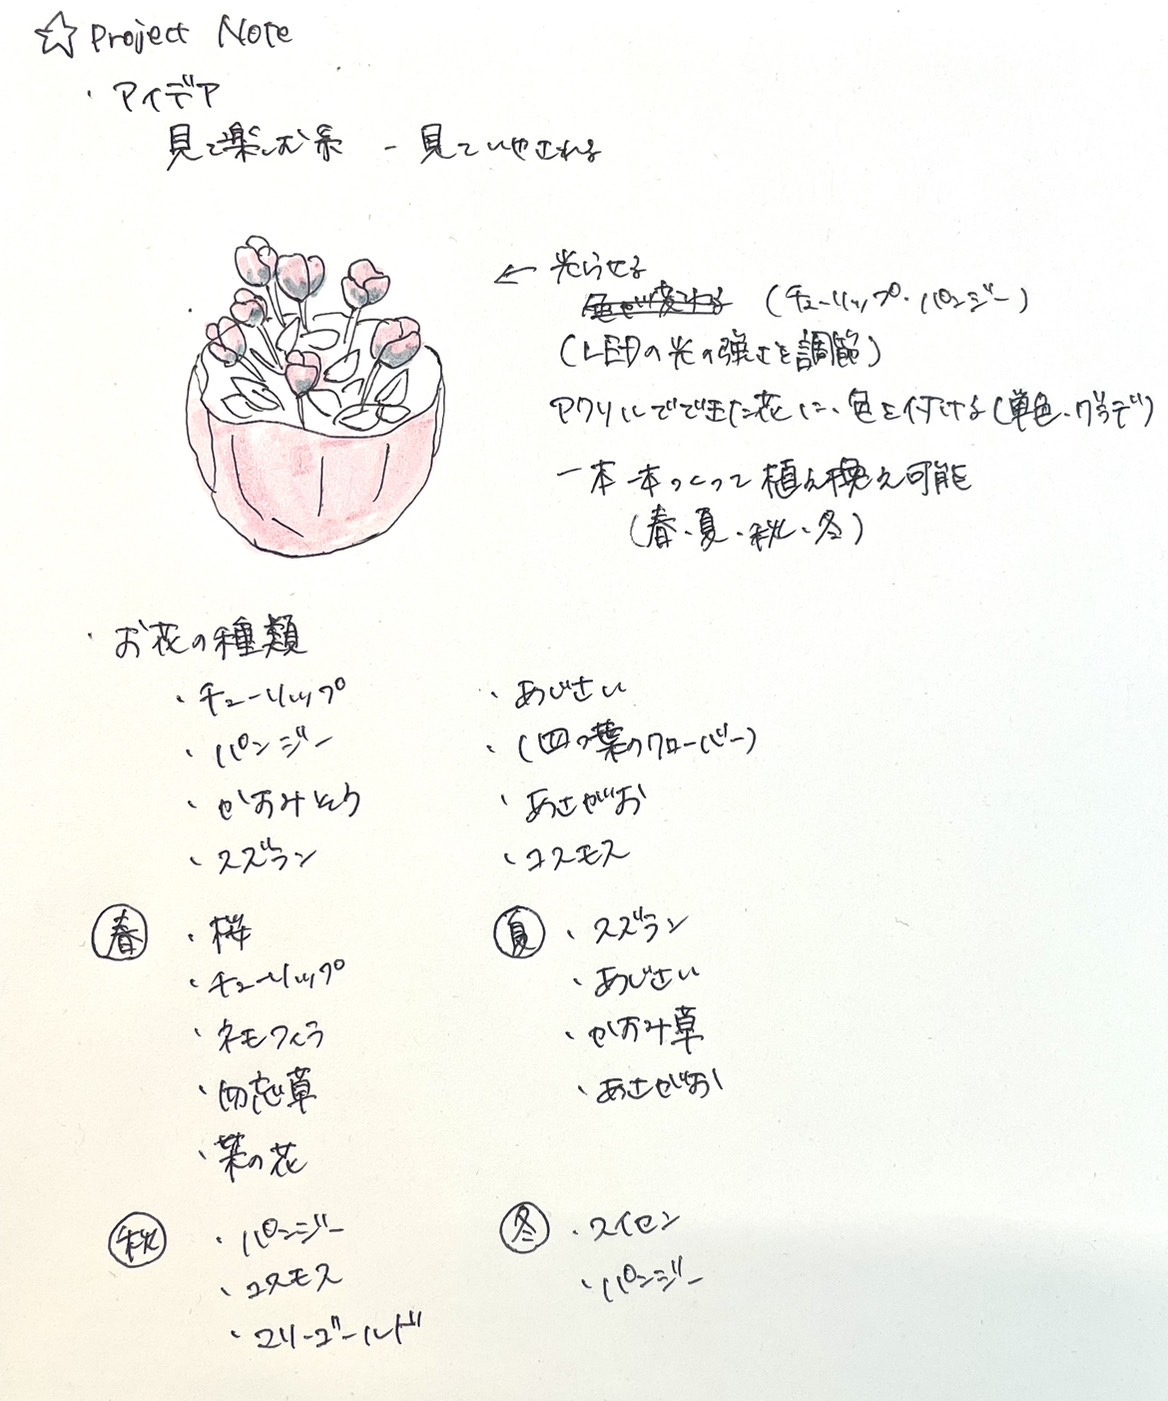 ☆ Project Note
・アイデア
見て楽しむ系 - 見ていやされる
← 光らせる
色が変わる (チューリップ・パンジー)
(LEDの光の強さを調節)
アクリルでできた花に、色を付ける(単色・グラデ)
一本一本とって植え換え可能
(春・夏・秋・冬)
・お花の種類
・チューリップ
・パンジー
・かすみそう
・スズラン
・あじさい
・(四つ葉のクローバー)
・あさがお
・コスモス
春 ・桜
・チューリップ
・ネモフィラ
・勿忘草
・菜の花
夏 ・スズラン
・あじさい
・かすみ草
・あさがお
秋 ・パンジー
・コスモス
・マリーゴールド
冬 ・スイセン
・パンジー